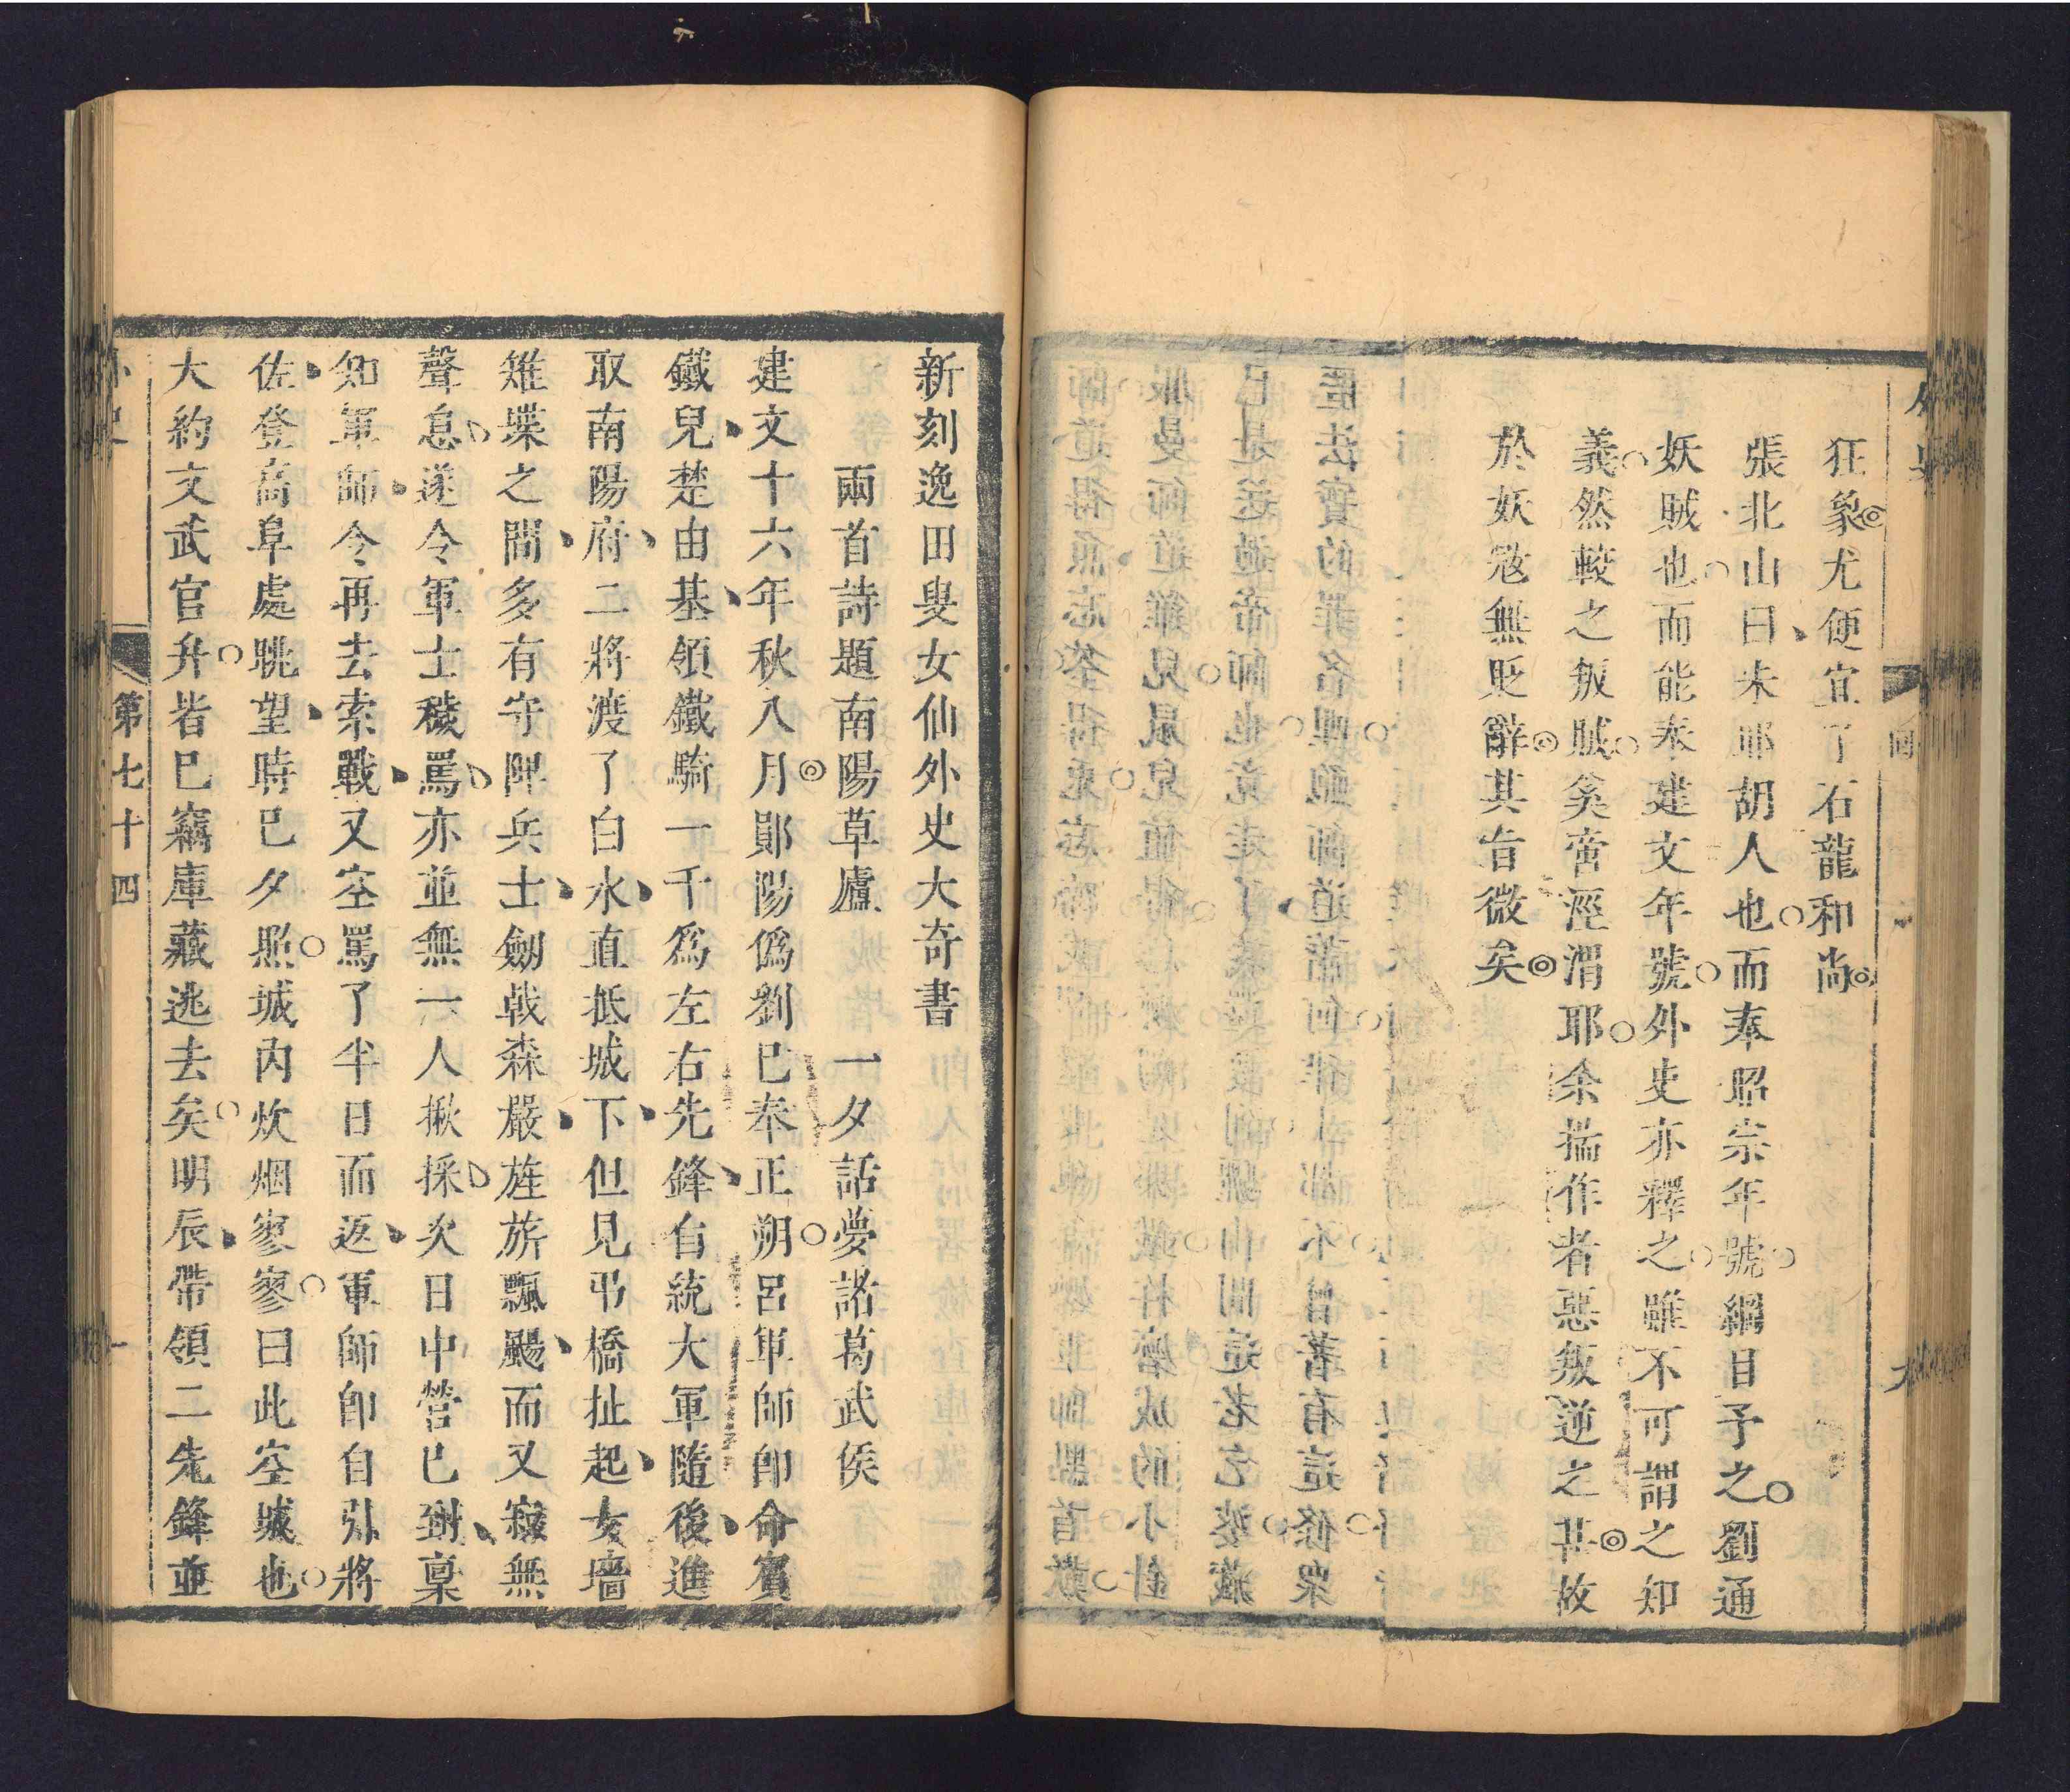 狂象尤便宜了石龍和尚
張北山曰朱耶胡人也而奉昭宗年號綱目予之劉通
妖賊也而能奉建文年號外史亦釋之雖不可謂之知
義然較之叛賊奚啻涇渭耶余揣作者惡叛逆之甚故
於妖寇無貶辭其旨微矣
新刻逸田叟女仙外史大奇書
兩首詩題南陽草廬 一夕話夢諸葛武侯
建文十六年秋八月鄖陽僞劉已奉正朔呂軍師即命賓
鐵兒楚由基領鐵騎一千爲左右先鋒自統大軍隨後進
取南陽府二將渡了白水直抵城下但見弔橋扯起女墻
雉堞之間多有守陴兵士劒戟森嚴旌旂飄颺而又寂無
聲息遂令軍士穢罵亦並無一人揪採次日中營已到稟
知軍師令再去索戰又空罵了半日而返軍師即自引將
佐登高阜處眺望時已夕照城內炊烟寥寥曰此空城也
大約文武官弁皆已竊庫藏逃去矣明辰帶領二先鋒並
外史 第七十四 一